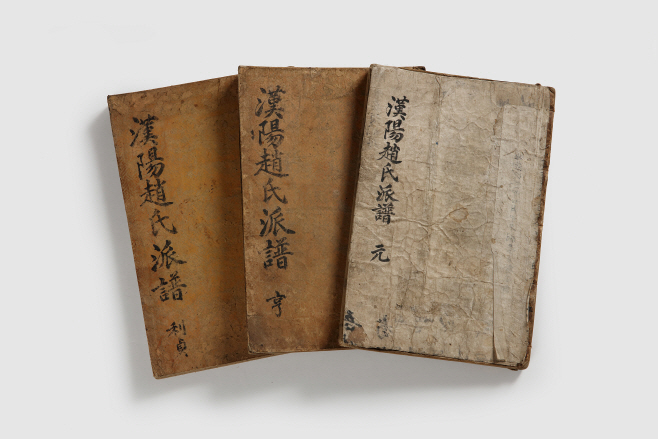 漢陽趙氏派譜
利貞
漢陽趙氏派譜
亨
漢陽趙氏派譜
元